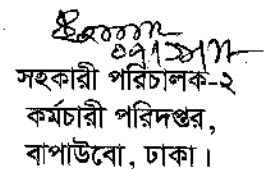 সহকারী পরিচালক-২
কর্মচারী পরিদপ্তর,
বাপাউবো, ঢাকা।